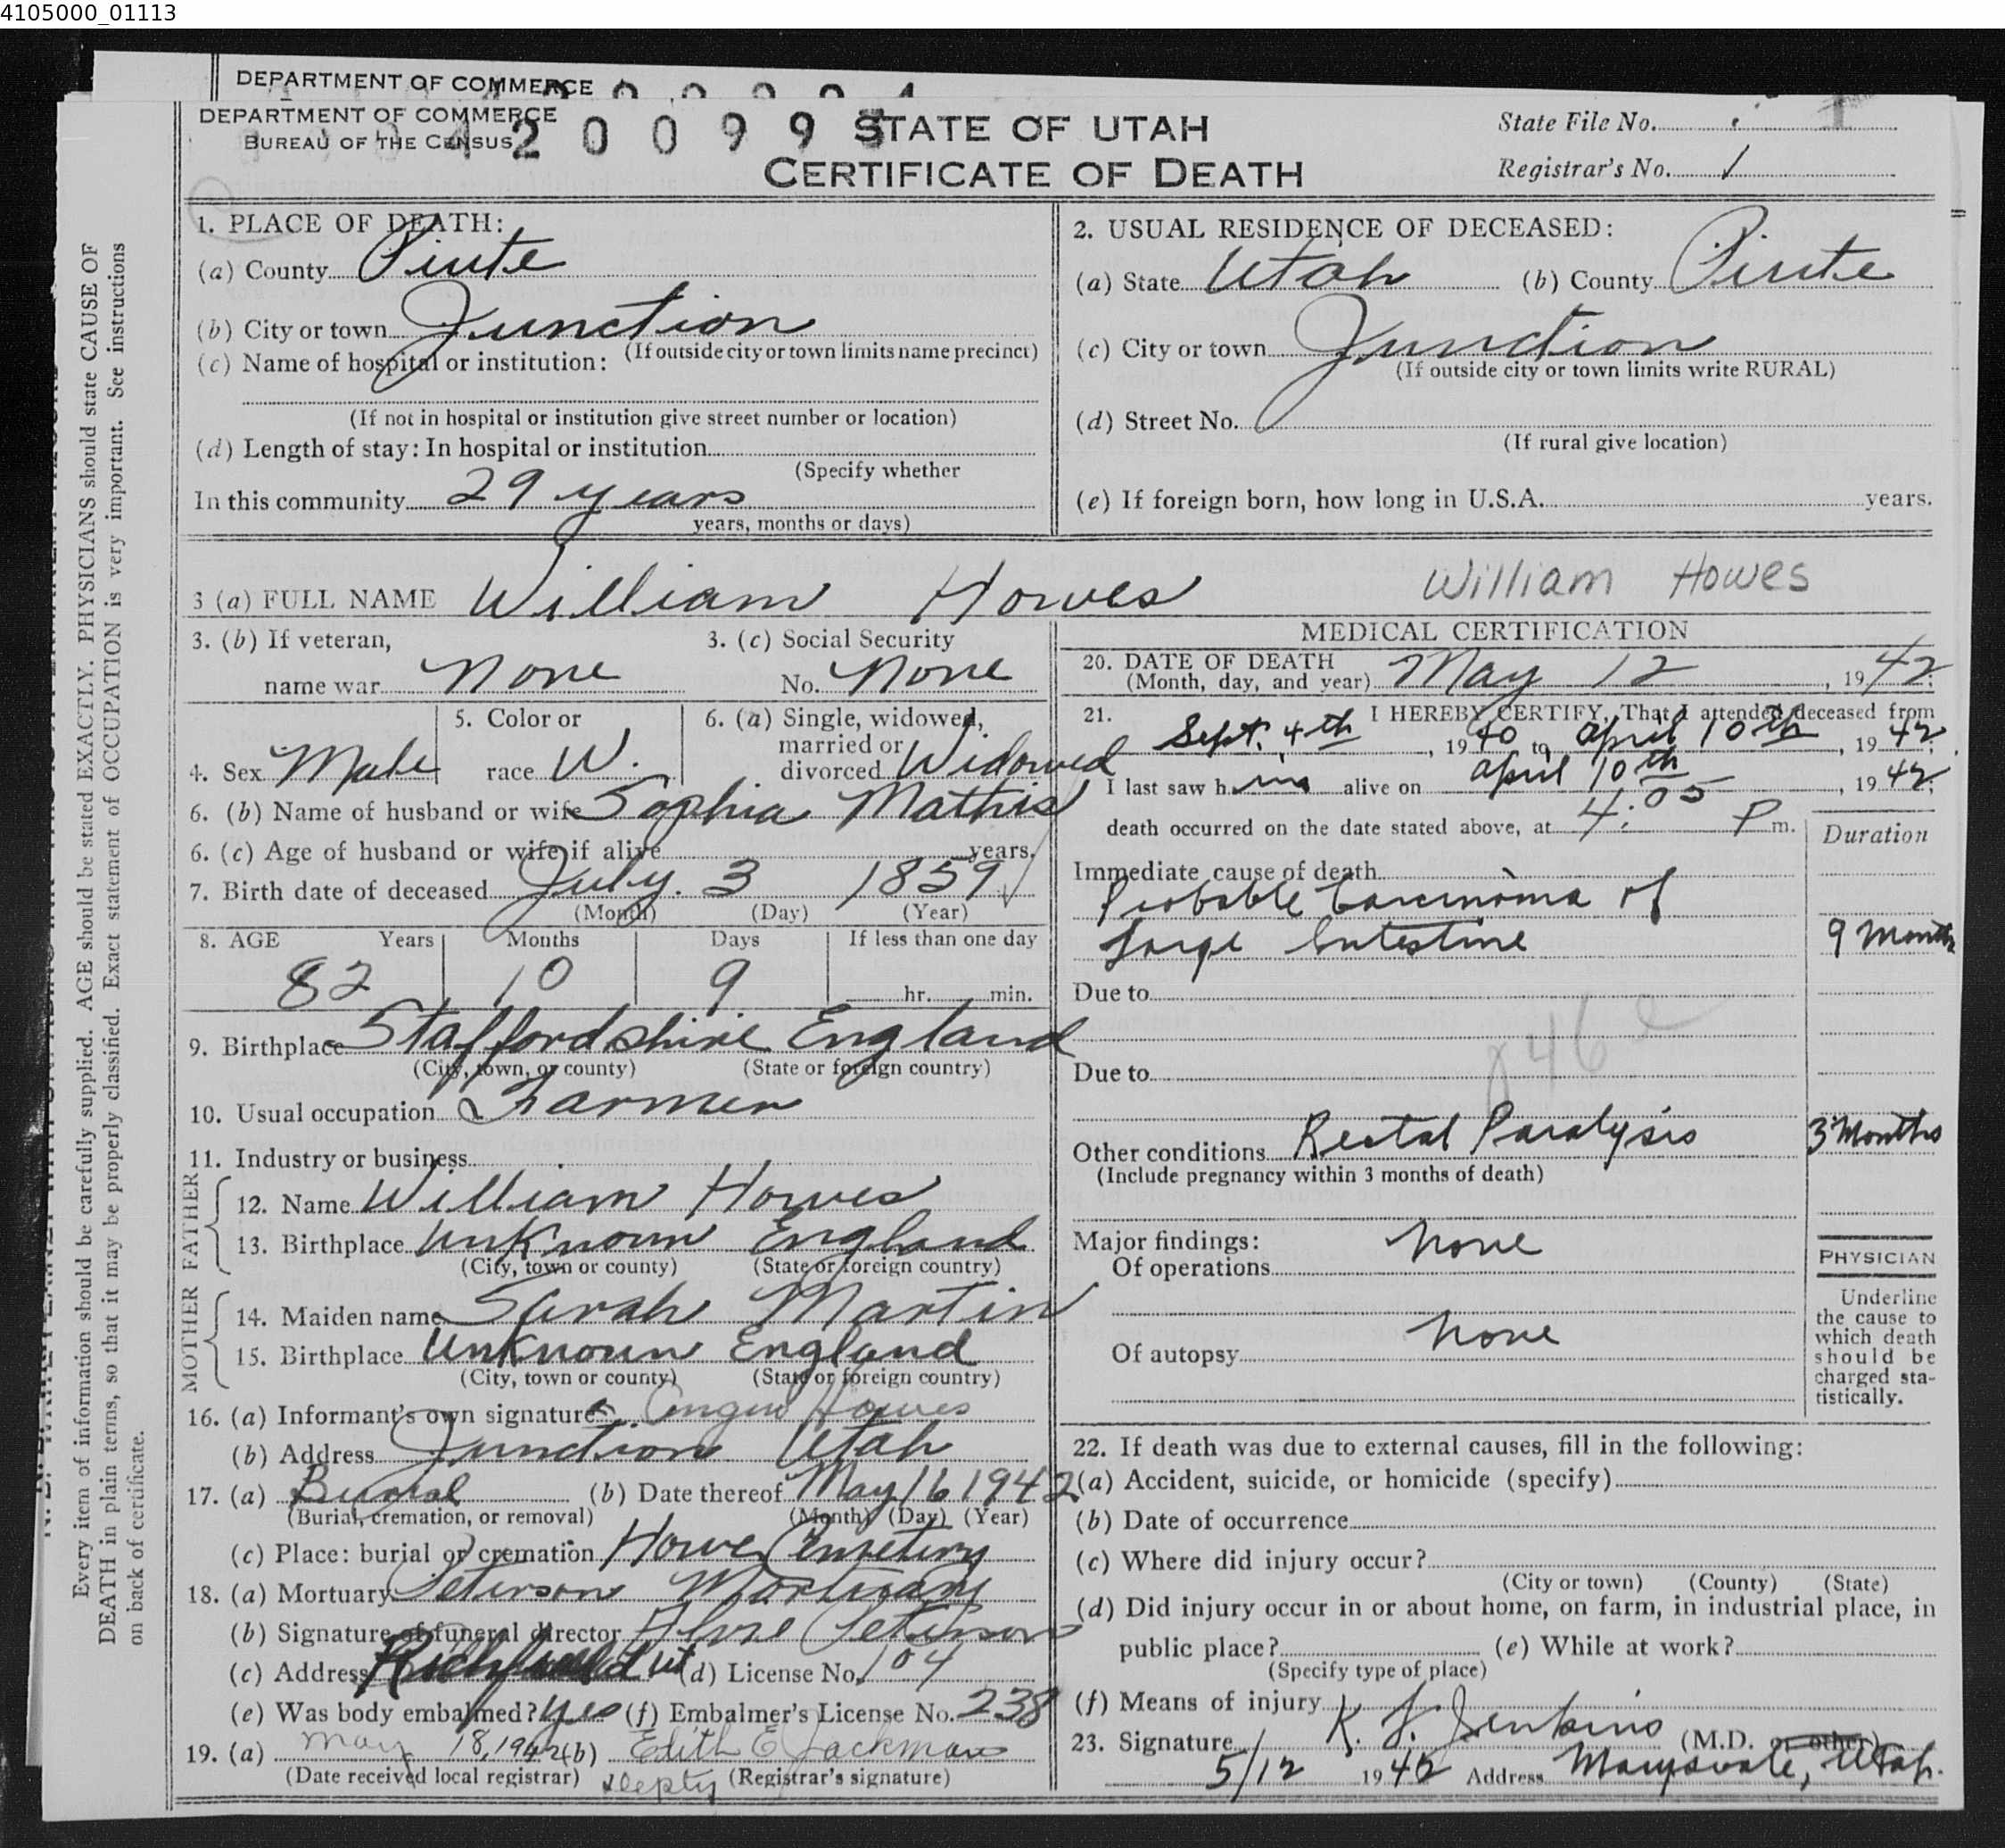 4105000_01113
DEPARTMENT OF COMMERCE
DEPARTMENT OF COMMERCE
BUREAU OF THE CENSUS
420099
STATE OF UTAH
CERTIFICATE OF DEATH
State File No.
Registrar's No. 1
1. PLACE OF DEATH:
(a) County Piute
(b) City or town Junction
(If outside city or town limits name precinct)
(c) Name of hospital or institution:
(If not in hospital or institution give street number or location)
(d) Length of stay: In hospital or institution
(Specify whether
In this community 29 years
years, months or days)
2. USUAL RESIDENCE OF DECEASED:
(a) State Utah (b) County Piute
(c) City or town Junction
(If outside city or town limits write RURAL)
(d) Street No.
(If rural give location)
(e) If foreign born, how long in U.S.A. years.
3 (a) FULL NAME William Howes William Howes
3. (b) If veteran,
name war None
3. (c) Social Security
No. None
4. Sex Male
5. Color or
race W.
6. (a) Single, widowed,
married or
divorced Widowed
6. (b) Name of husband or wife Sophia Mathis
6. (c) Age of husband or wife if alive years.
7. Birth date of deceased July. 3 1859
(Month) (Day) (Year)
8. AGE Years Months Days If less than one day
82 10 9 hr. min.
9. Birthplace Staffordshire England
(City, town, or county) (State or foreign country)
10. Usual occupation Farmer
11. Industry or business
FATHER
12. Name William Howes
13. Birthplace Unknown England
(City, town or county) (State or foreign country)
MOTHER
14. Maiden name Sarah Martin
15. Birthplace Unknown England
(City, town or county) (State or foreign country)
16. (a) Informant's own signature Howes
(b) Address Junction Utah
17. (a) Burial (b) Date thereof May 16 1942
(Burial, cremation, or removal) (Month) (Day) (Year)
(c) Place: burial or cremation Howes Cemetery
18. (a) Mortuary Peterson Mortuary
(b) Signature of funeral director Peterson
(c) Address Richfield Ut (d) License No. 104
(e) Was body embalmed? Yes (f) Embalmer's License No. 238
19. (a) May 18, 1942 (b) Edith E Jackman
(Date received local registrar) Depty (Registrar's signature)
MEDICAL CERTIFICATION
20. DATE OF DEATH
(Month, day, and year) May 12, 1942
21. I HEREBY CERTIFY, That I attended deceased from
Sept. 4th, 1940 to April 10th, 1942;
I last saw him alive on April 10th, 1942;
death occurred on the date stated above, at 4:05 P m.
Duration
Immediate cause of death
Probable Carcinoma of
Large Intestine 9 Months
Due to
Due to
Other conditions Rectal Paralysis 3 Months
(Include pregnancy within 3 months of death)
Major findings:
Of operations None
Of autopsy None
PHYSICIAN
Underline
the cause to
which death
should be
charged sta-
tistically.
22. If death was due to external causes, fill in the following:
(a) Accident, suicide, or homicide (specify)
(b) Date of occurrence
(c) Where did injury occur?
(City or town) (County) (State)
(d) Did injury occur in or about home, on farm, in industrial place, in
public place? (e) While at work?
(Specify type of place)
(f) Means of injury
23. Signature K. J. Jenkins (M.D. or other)
5/12 1942 Address Marysvale, Utah.
Every item of information should be carefully supplied. AGE should be stated EXACTLY. PHYSICIANS should state CAUSE OF
DEATH in plain terms, so that it may be properly classified. Exact statement of OCCUPATION is very important. See instructions
on back of certificate.